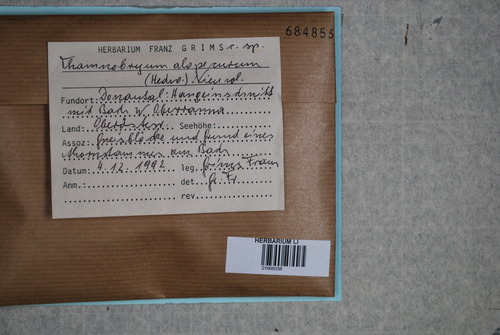 684853
HERBARIUM FRANZ GRIMS c. sp.
Thamnobryum alopecurum
(Hedw.) Nieuwl.
Fundort: Donautal: Hangeinschnitt
mit Bach w Oberranna
Land: Oberösterr. Seehöhe:
Assoz: und eines
am Bach
Datum: 4.12.1992 leg. Grims Franz
Anm.: det. Gr. Fr.
rev.
HERBARIUM LI
01666036